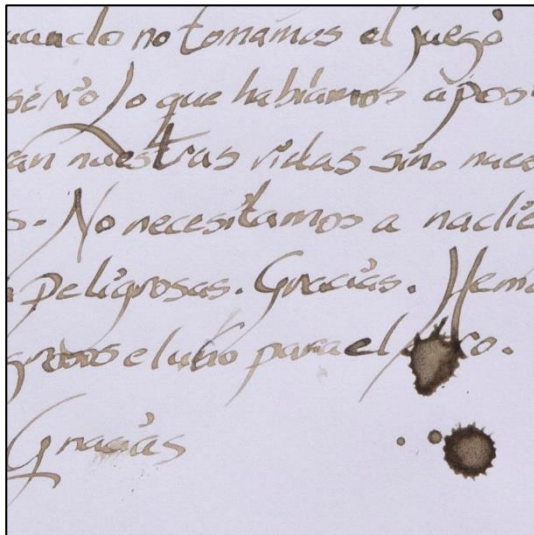 cuando no tomamos el juego
serio lo que habíamos apos
an nuestras vidas sino nace
s. No necesitamos a nadie
peligrosas. Gracias. Hem
grosos el uno para el otro.
Gracias